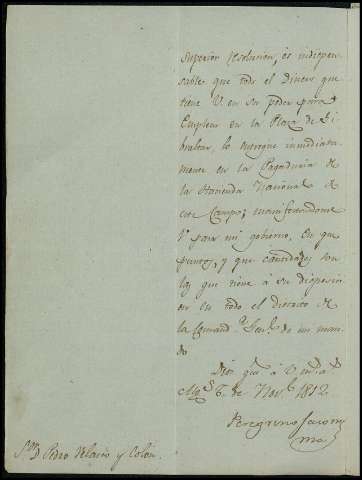 superior resolucion, es indispen
sable que todo el dinero que
tiene V. en su poder para
Emplear en la Plaza de Gi
braltar, lo entregue inmediata
mente en la Pagaduria de
la Hacienda Nacional de
este Campo; manifestandome
V. para mi gobierno, en que
puntos, y que cantidades son
las que tiene à su disposicion
en todo el distrito de
la Comand.ª Gen.l de mi man
do
Dios gue à V. m.s a.s
6. de Nov.e 1812
Peregrino Jacom
me
S.or D. Pedro Velasco y Colón.